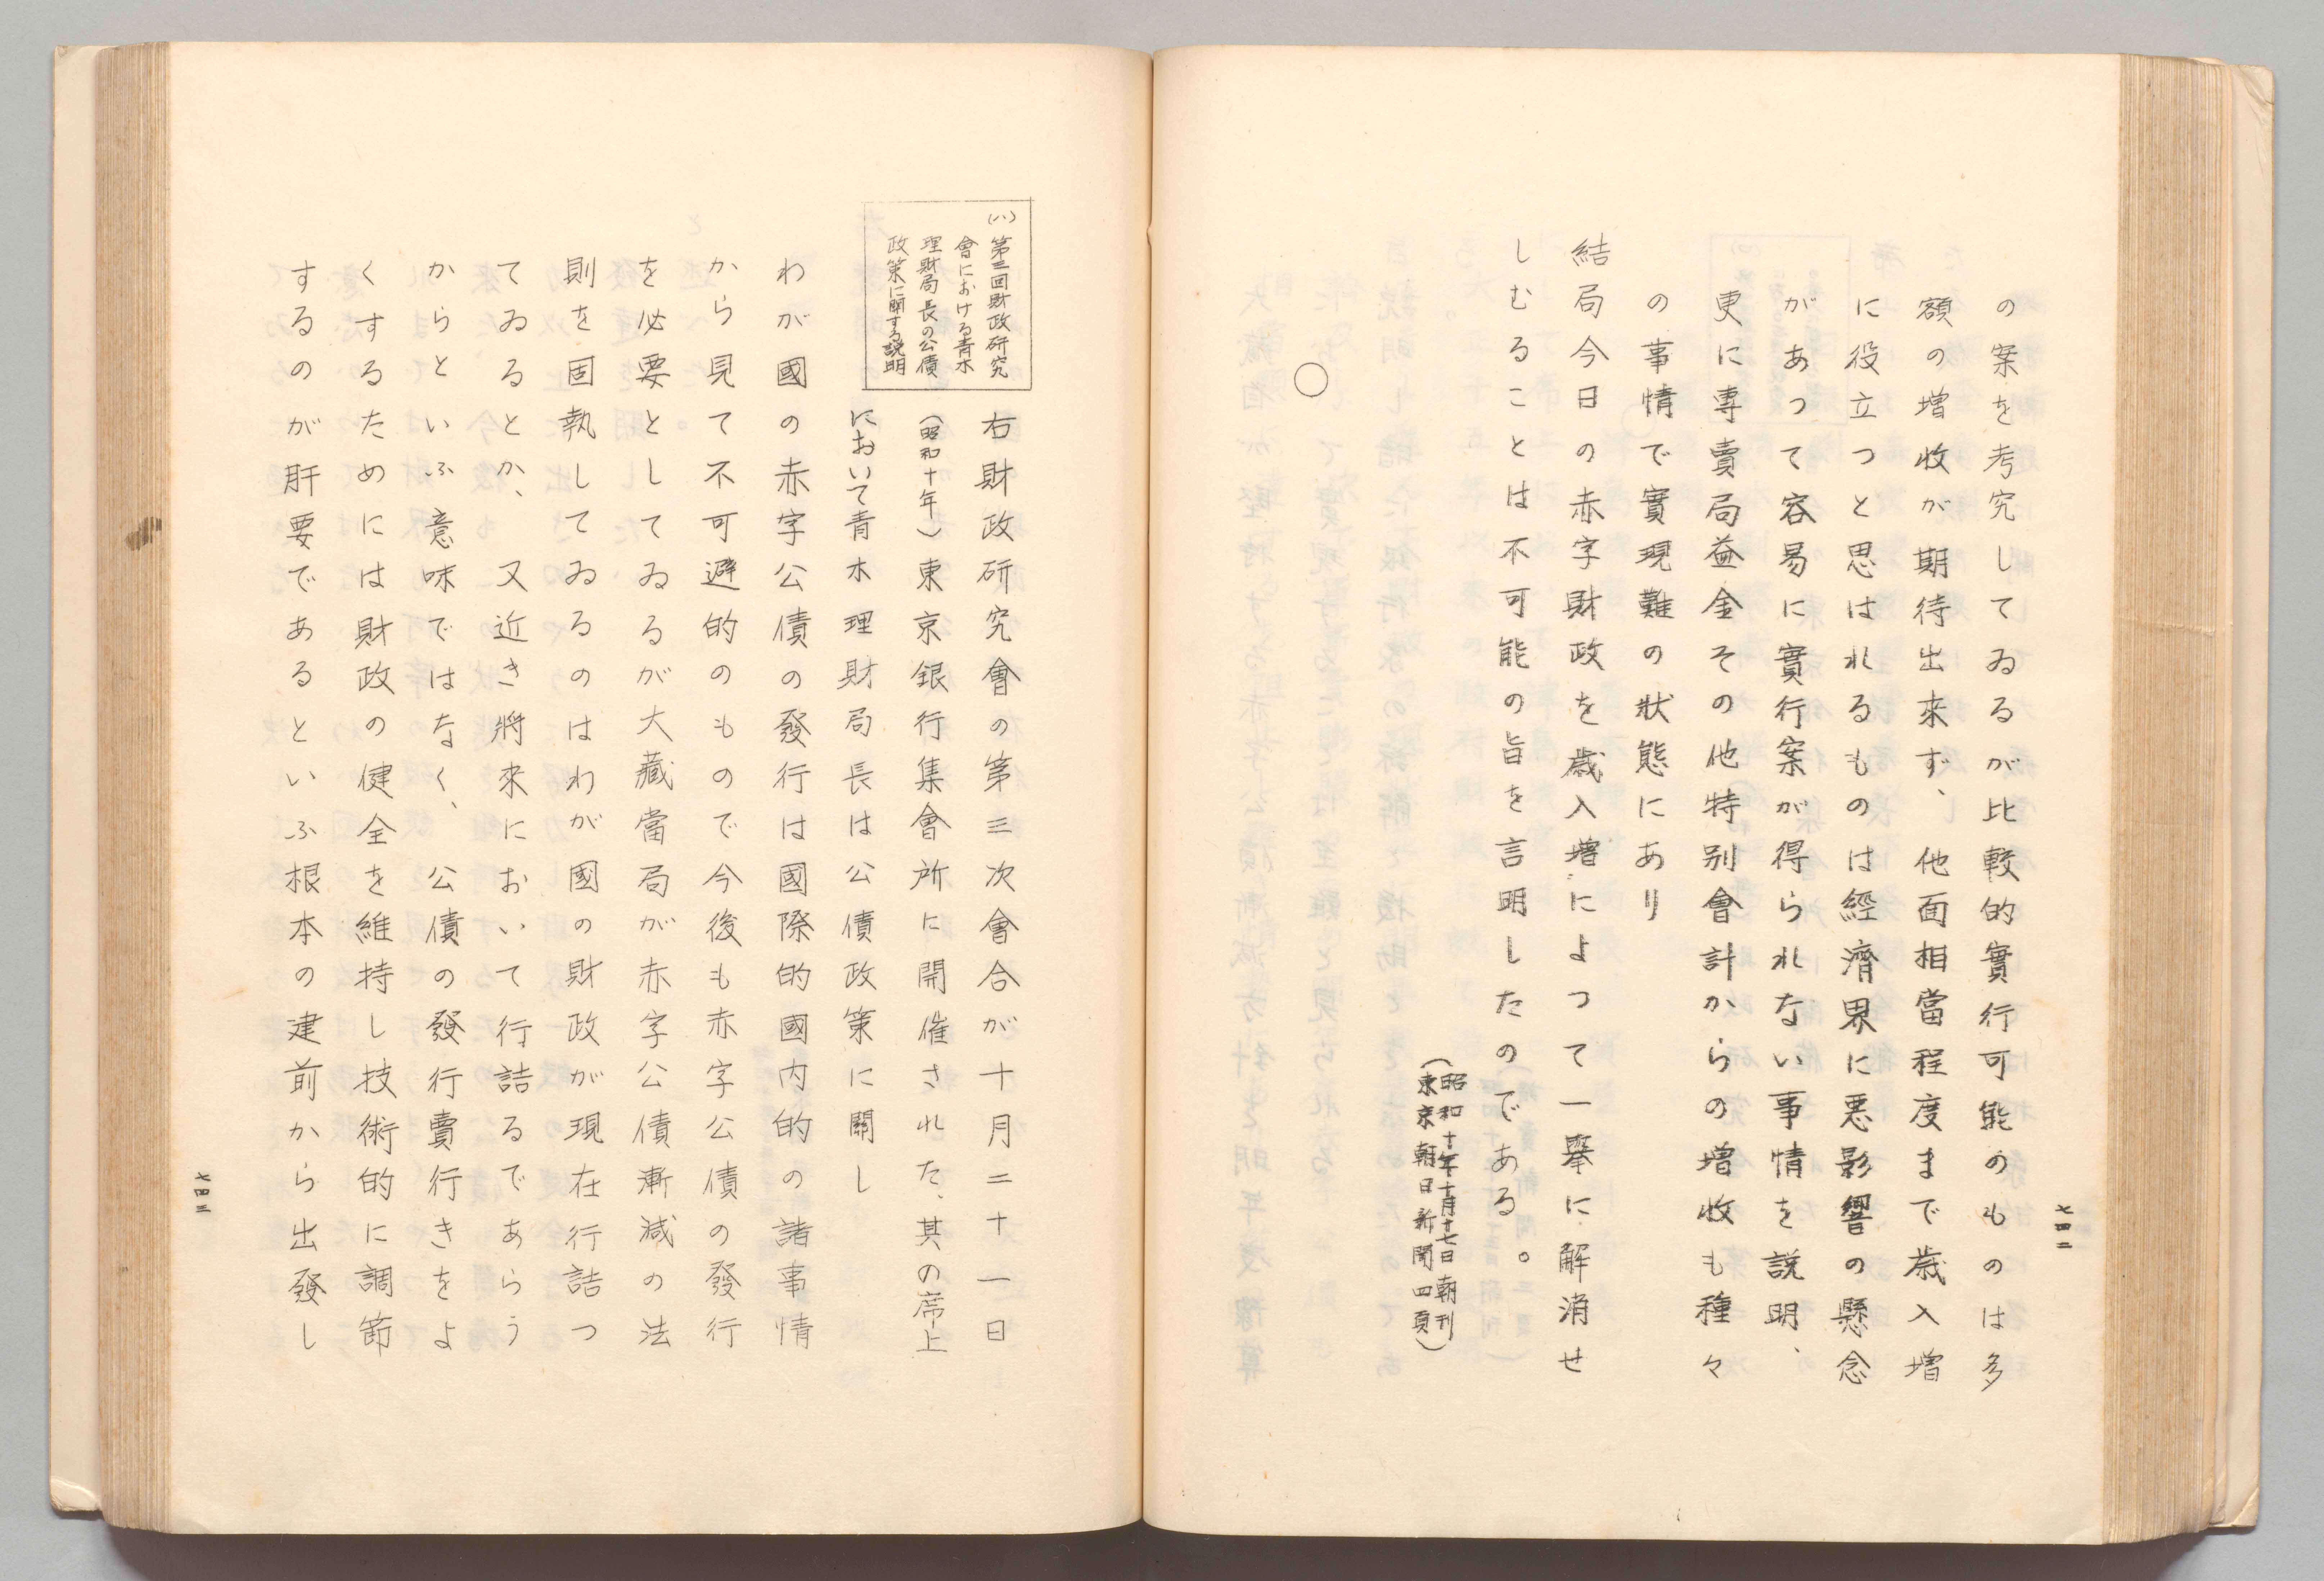 の案を考究してゐるが比較的實行可能のものは多
額の増收が期待出来ず、他面相當程度まで歳入増
に役立つと思はれるものは經濟界に悪影響の懸念
があつて容易に實行案が得られない事情を説明、
更に専賣局益金その他特別會計からの増收も種々
の事情で實現難の状態にあり
結局今日の赤字財政を歳入増によつて一擧に解消せ
しむることは不可能の旨を言明したのである。
(昭和十年十月十七日朝刊
東京朝日新聞四頁)
○
七四二
(八)第三回財政研究
會における青木
理財局長の公債
政策に関する説明
右財政研究會の第三次會合が十月二十一日
(昭和十年)東京銀行集會所に開催された、其の席上
において青木理財局長は公債政策に關し
わが國の赤字公債の發行は國際的國内的の諸事情
から見て不可避的のもので今後も赤字公債の發行
を必要としてゐるが大藏當局が赤字公債漸減の法
則を固執してゐるのはわが國の財政が現在行詰つ
てゐるとか、又近き將來において行詰るであらう
からといふ意味ではなく、公債の發行賣行きをよ
くするためには財政の健全を維持し技術的に調節
するのが肝要であるといふ根本の建前から出發し
七四三